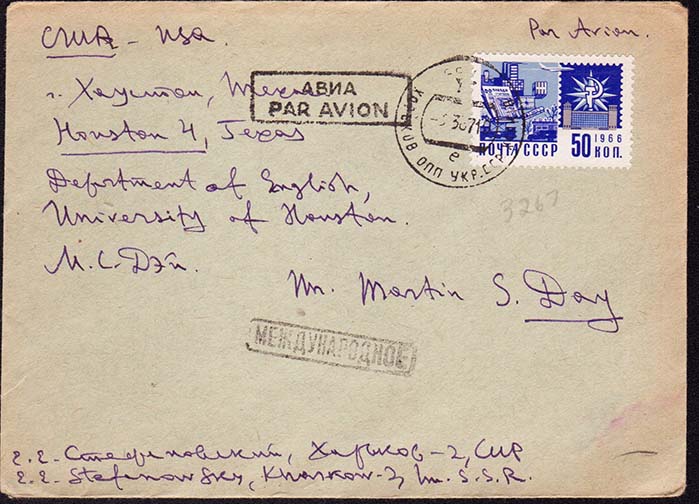 США - USA
Par Avion.
г. Хаустон, Техас
АВИА
PAR AVION
Houston 4, Texas
ПОЧТА СССР
50 КОП.
1966
ХАРЬКОВ ОПП УКР. ССР
3267
Department of English,
University of Houston.
М.С. Дэй.
Mr. Martin S. Day
МЕЖДУНАРОДНОЕ
Е.Е. Стефановский, Харьков-2,
E.E. Stefanowsky, Kharkow-2, S.S.R.